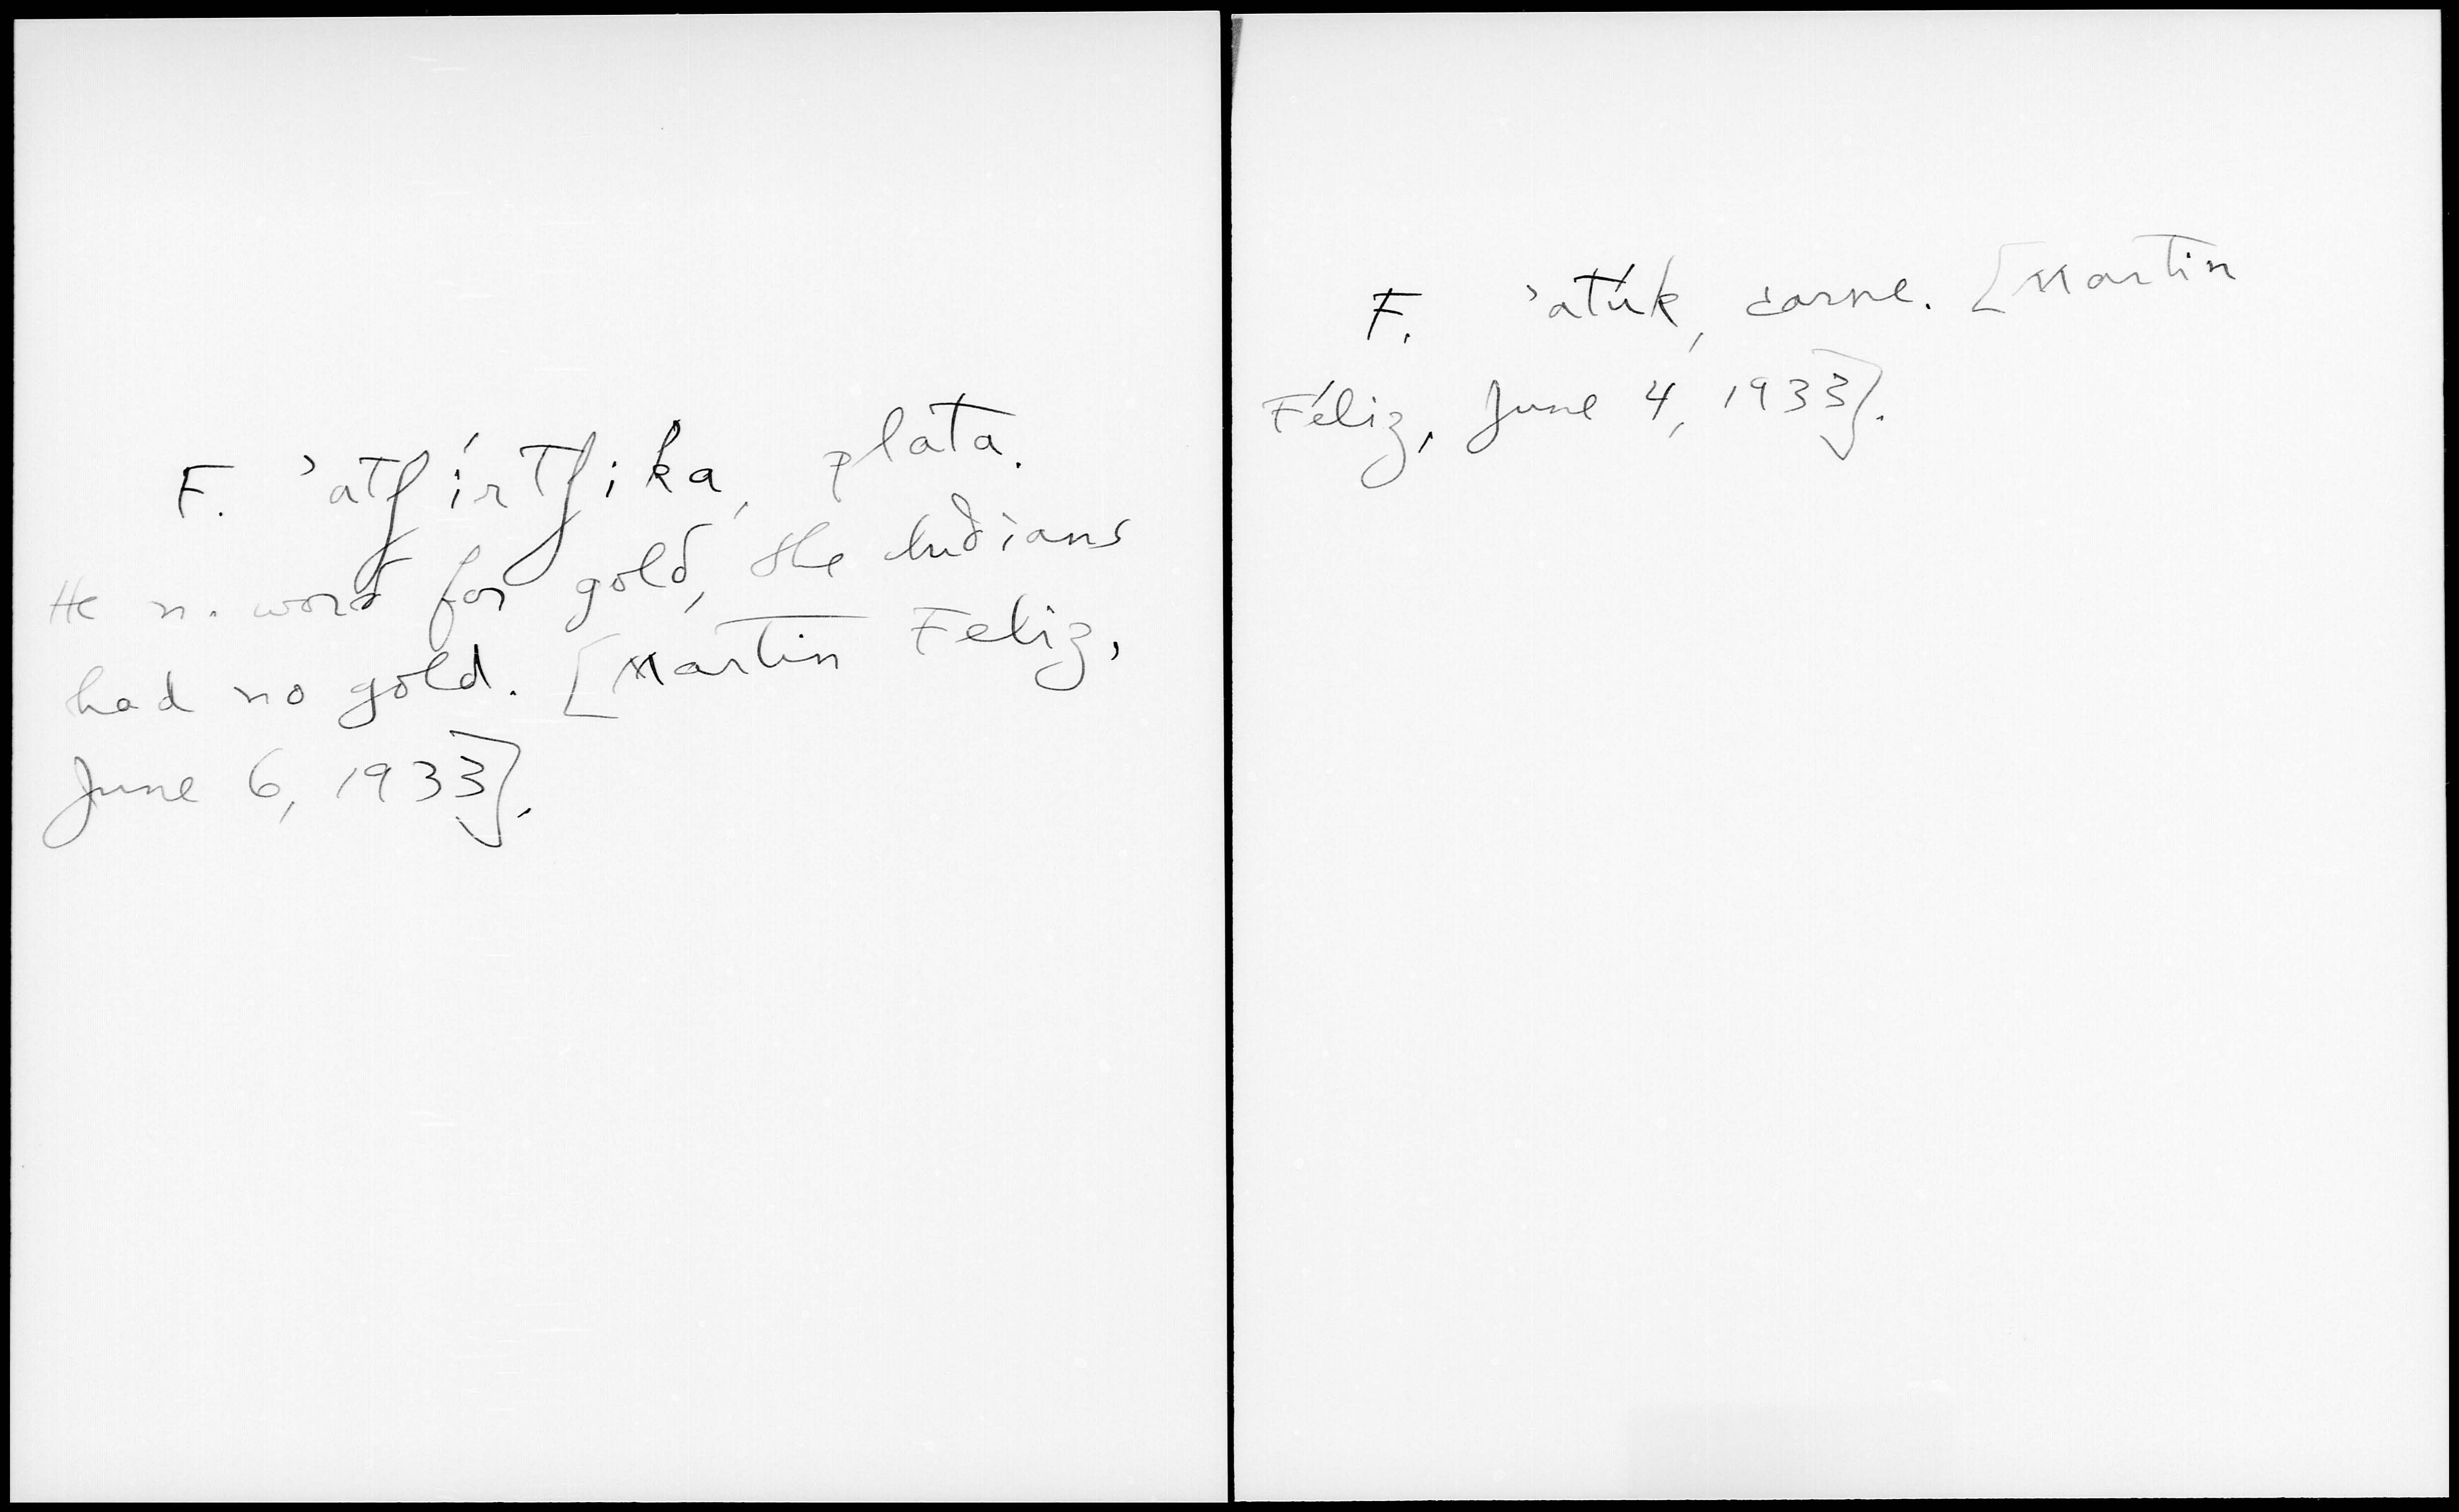 F. ʼatʃírtʃika, plata.
He n. word for gold, the Indians
had no gold. [Martin Feliz,
June 6, 1933].
F. ʼatúk, carne. [Martin
Féliz, June 4, 1933].